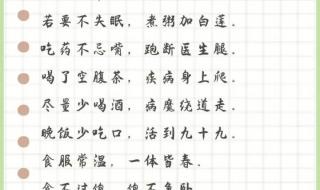 若要不失眠，煮粥加白莲.
吃药不忌嘴，跑断医生腿.
喝了空腹茶，疾病身上爬.
尽量少喝酒，病魔绕道走.
晚饭少吃口，活到九十九.
食服常温，一体皆春.